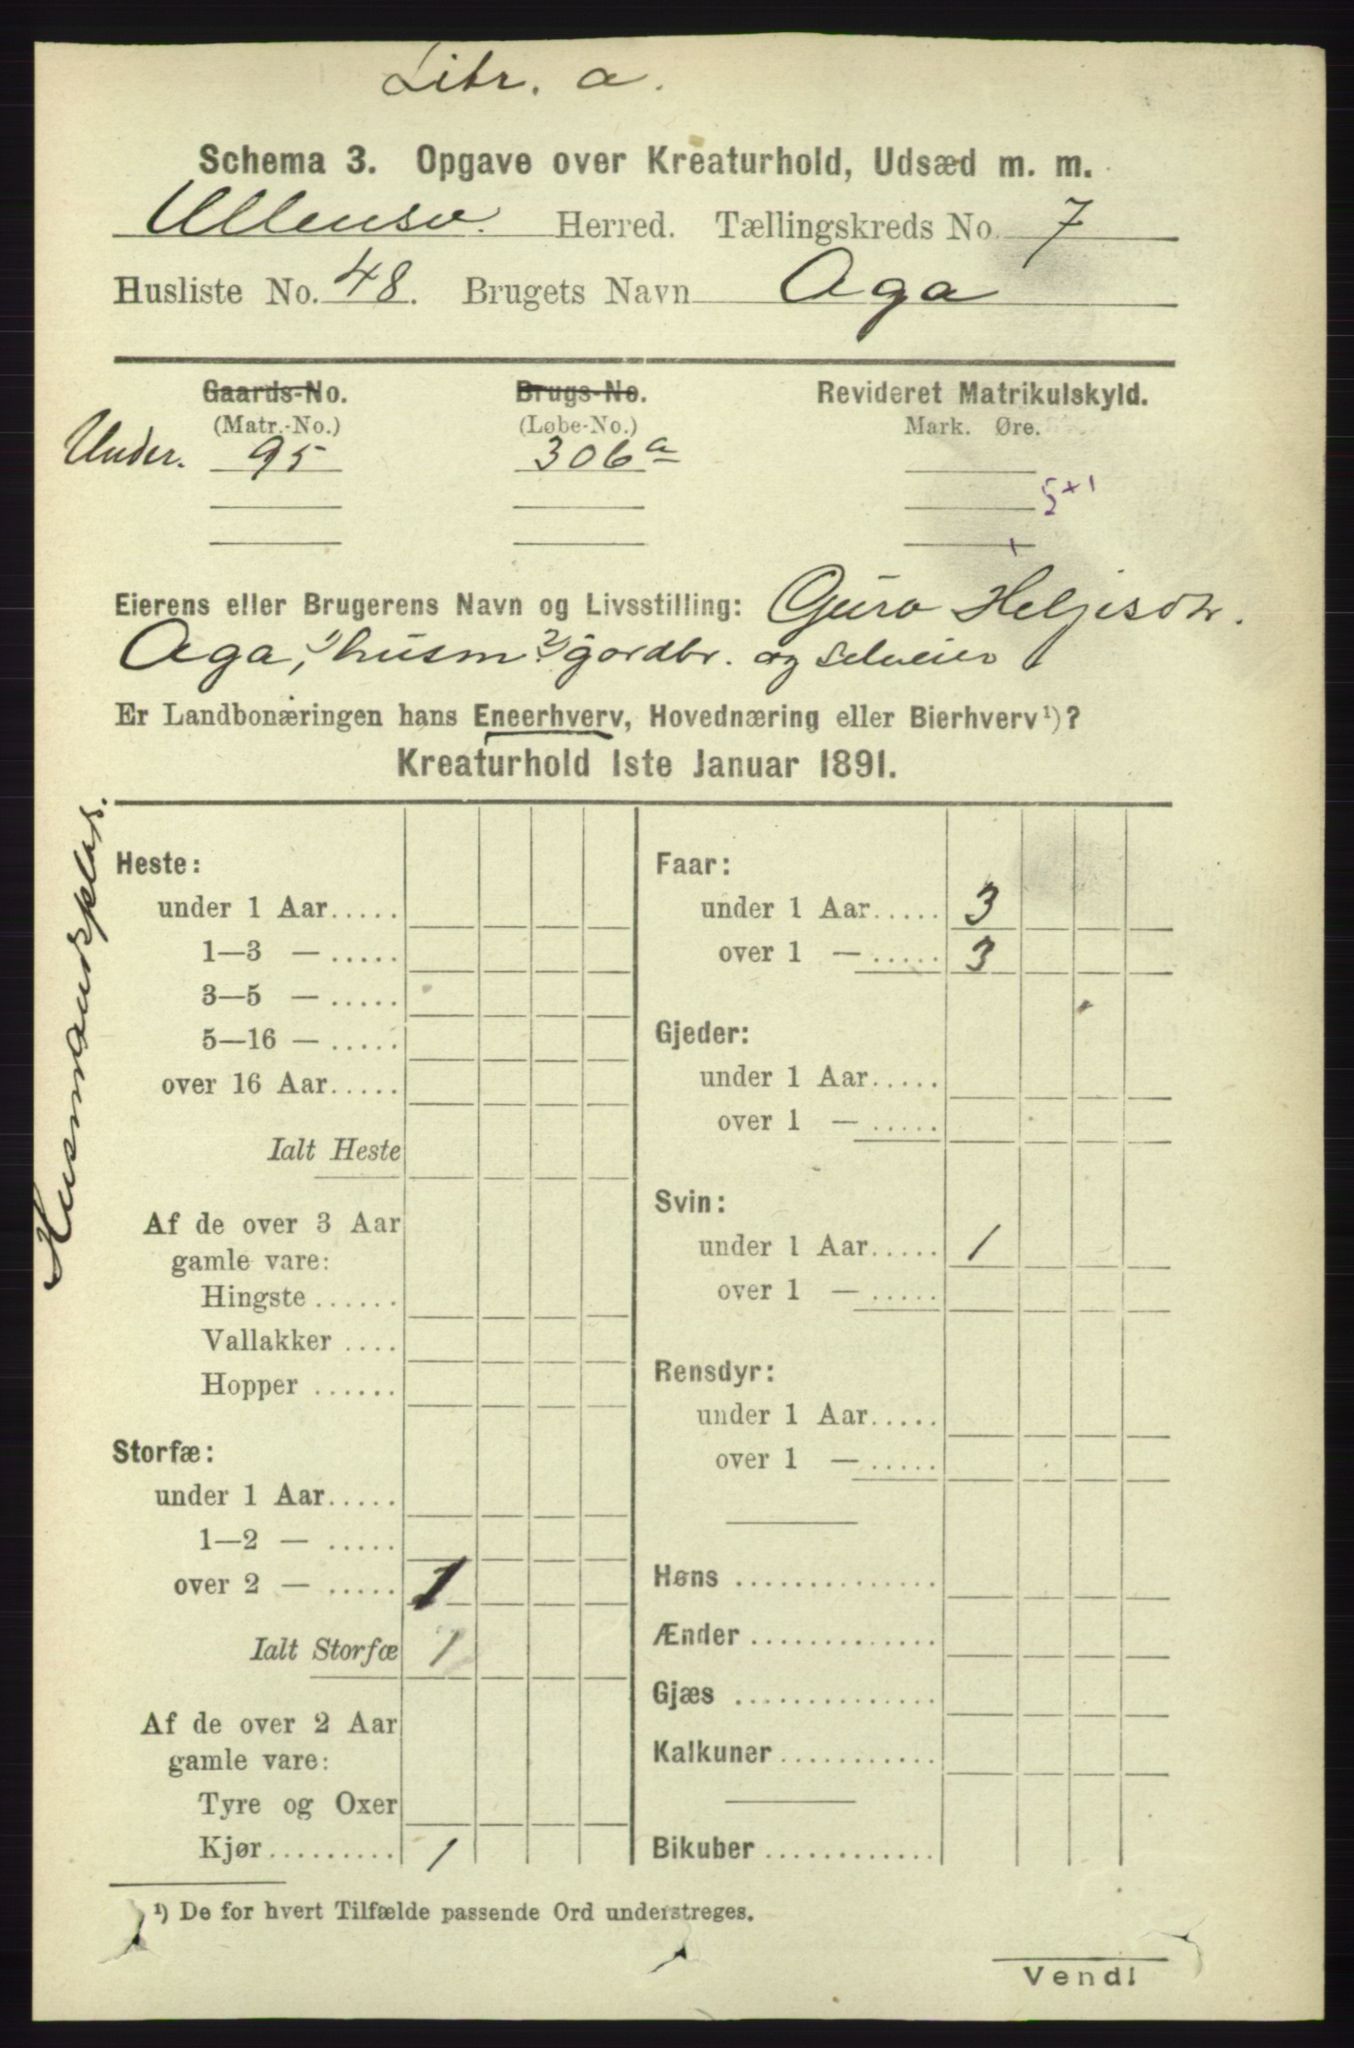 Litr. a.
Schema 3. Opgave over Kreaturhold, Udsæd m. m.
Ullensv. Herred. Tællingskreds No. 7
Husliste No. 48. Brugets Navn Aga
Gaards-No. Brugs-No. Revideret Matrikulskyld.
(Matr.-No.) (Løbe-No.) Mark. Øre.
Under. 95 306a
5+1
Eierens eller Brugerens Navn og Livsstilling: Guro Heljesdtr.
Aga, 1) husm. 2) gordbr. og selveier
Er Landbonæringen hans Eneerhverv, Hovednæring eller Bierhverv¹)?
Kreaturhold 1ste Januar 1891.
Husmandsplds.
Heste:
under 1 Aar.....
1—3 — .....
3—5 — .....
5—16 — .....
over 16 Aar.....
Ialt Heste
Af de over 3 Aar
gamle vare:
Hingste ......
Vallakker ....
Hopper ......
Storfæ:
under 1 Aar.....
1—2 — .....
over 2 — ..... 1
Ialt Storfæ 1
Af de over 2 Aar
gamle vare:
Tyre og Oxer
Kjør ......... 1
Faar:
under 1 Aar..... 3
over 1 — ..... 3
Gjeder:
under 1 Aar.....
over 1 — .....
Svin:
under 1 Aar..... 1
over 1 — .....
Rensdyr:
under 1 Aar.....
over 1 — .....
Høns ..............
Ænder .............
Gjæs ..............
Kalkuner ...........
Bikuber ............
¹) De for hvert Tilfælde passende Ord understreges.
Vend!